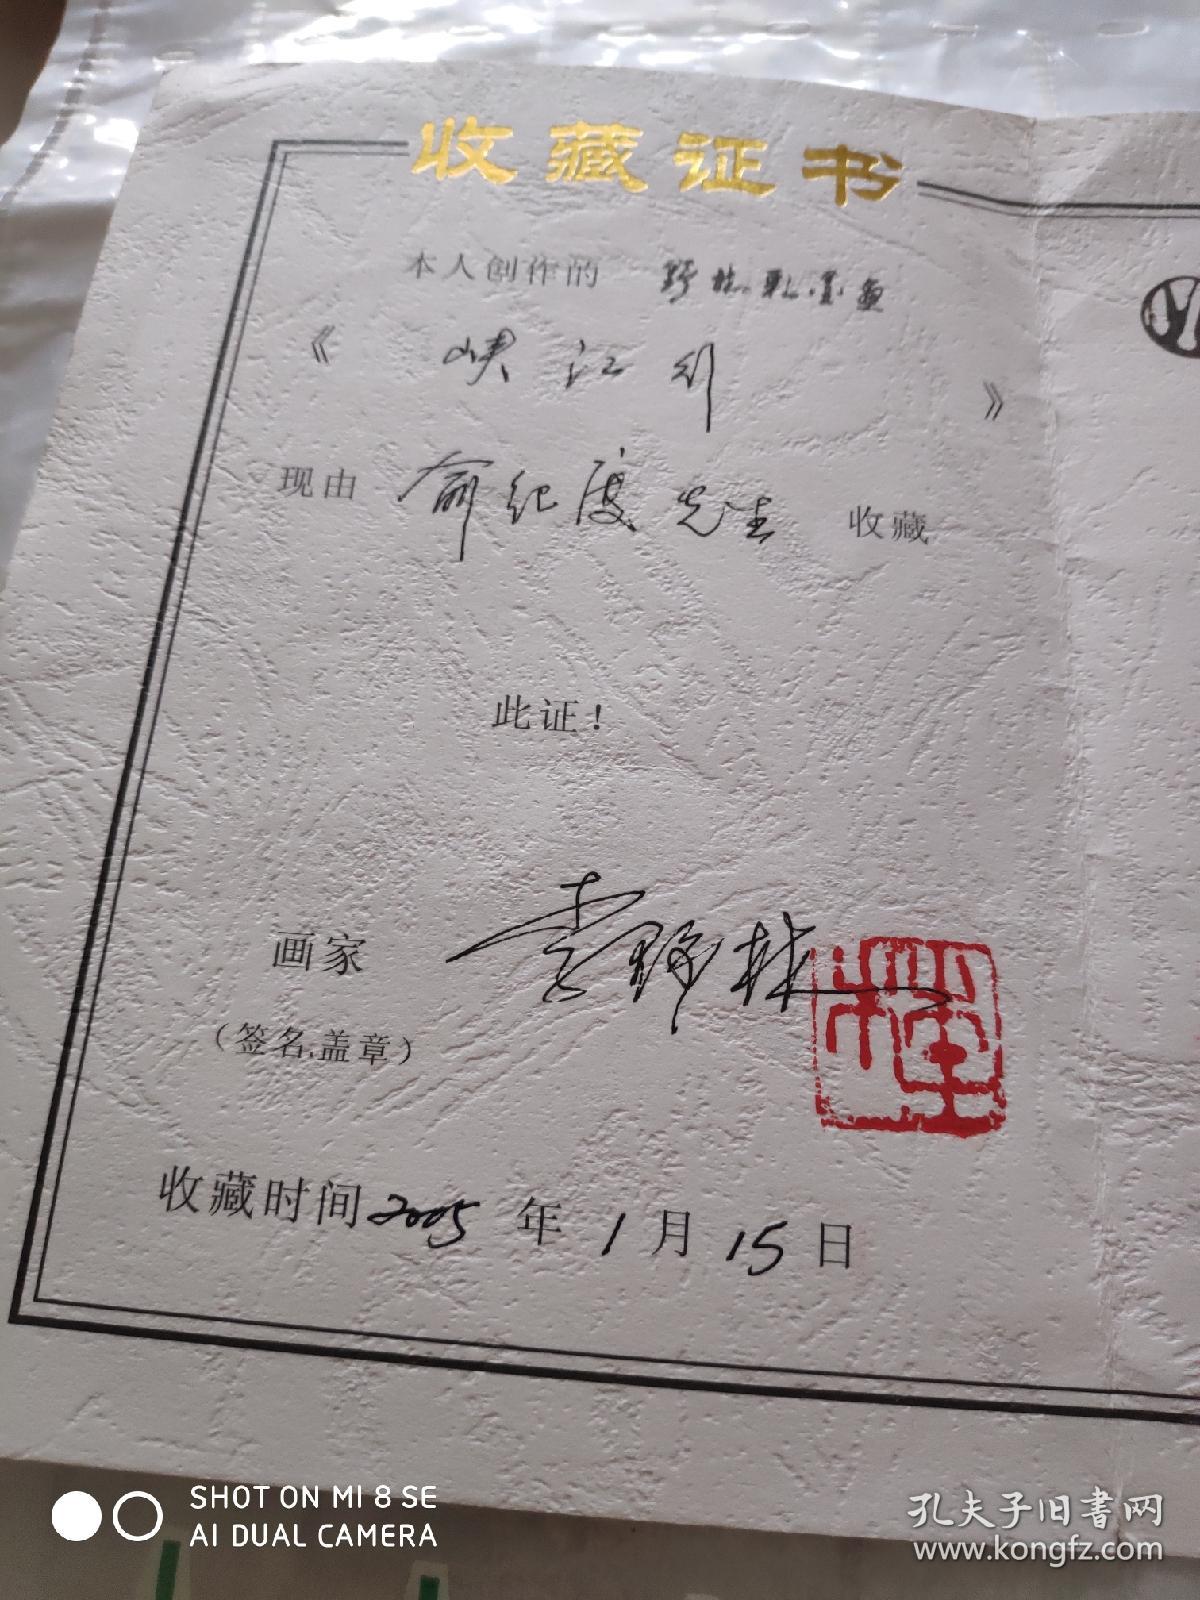 收藏证书
本人创作的 野林彩墨画
《 峡江行 》
现由 俞纪度先生 收藏
此证！
画家 李野林
（签名、盖章）
收藏时间2005年1月15日
SHOT ON MI 8 SE
AI DUAL CAMERA
孔夫子旧书网
www.kongfz.com